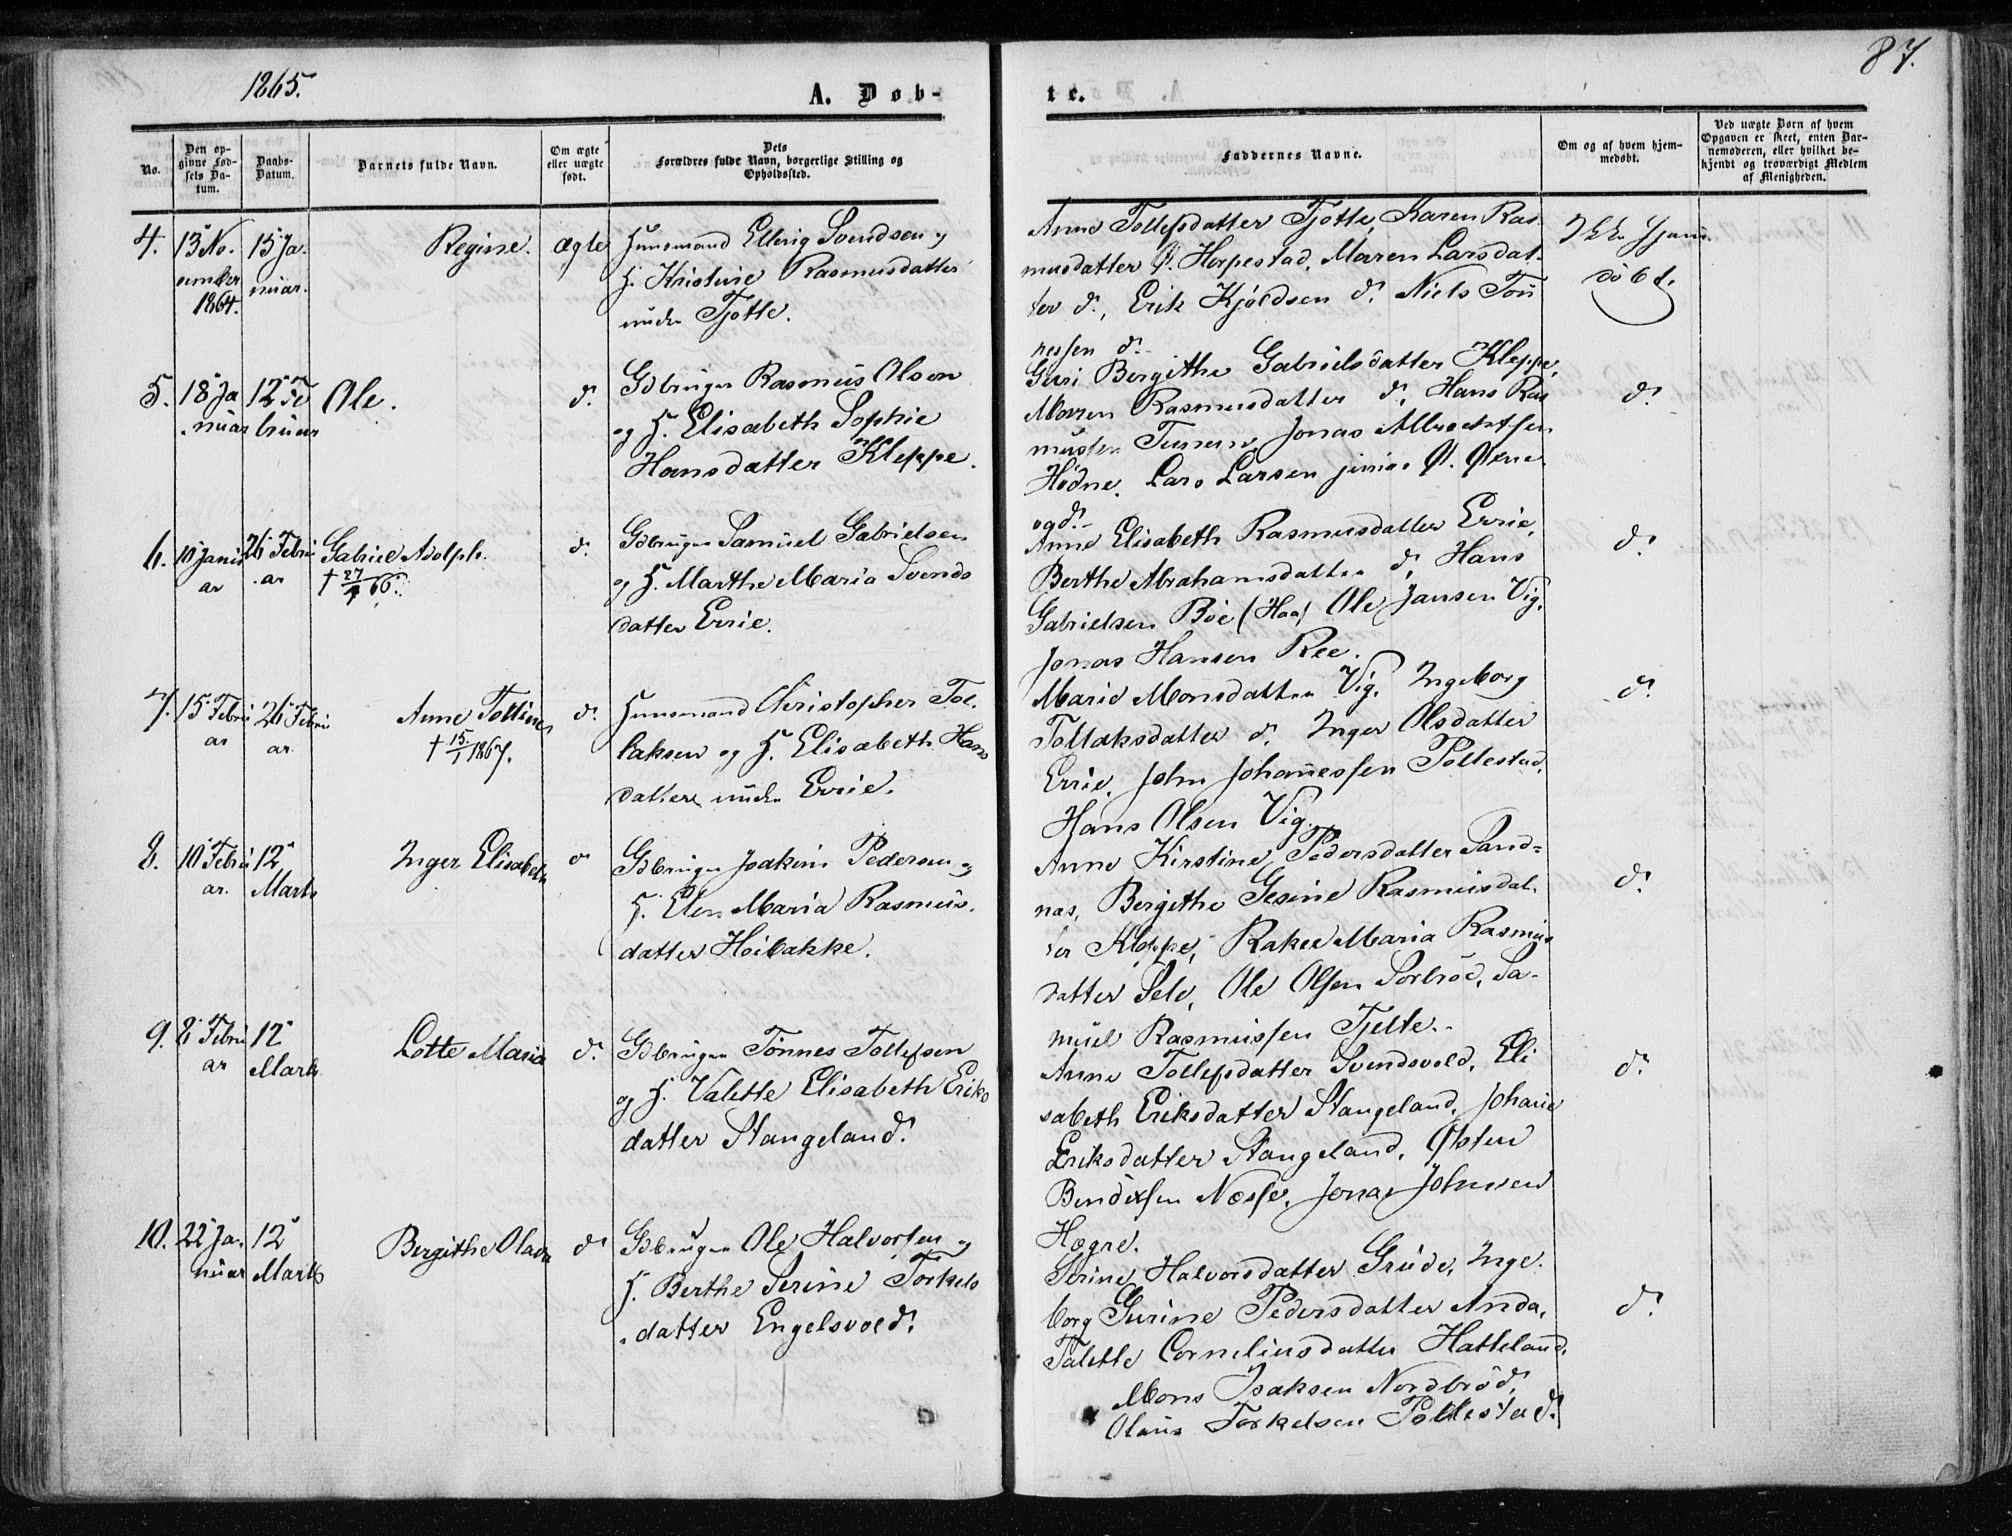 1865.
A. Døb-
te.
87.
No.
Den op-
givne Fød-
sels Da-
tum.
Daabs-
Datum.
Barnets fulde Navn.
Om ægte
eller uægte
født.
Dets
Forældres fulde Navn, borgerlige Stilling og
Opholdssted.
Faddernes Navne.
Om og af hvem hjem-
medøbt.
Ved uægte Børn af hvem
Opgaven er skeet, enten Bar-
nemoderen, eller hvilket be-
kjendt og troværdigt Medlem
af Menigheden.
4. 13 No- 15 Ja- Regine. ægte Huusmand Elling Svendsen og
vember nuar. H. Kristine Rasmusdatter
1864. under Tjøtte.
Anne Tollefsdatter Tjøtte, Karen Ras-
musdatter Ø. Horpestad, Maren Larsdat-
ter d°, Erik Kjøldsen d°, Niels Tøn
nessen d°
Ikke hjem
døbt.
5. 18 Ja 12 Fe Ole. d° Gdbruger Rasmus Olsen
nuar bruar og H. Elisabeth Sophie
Hansdatter Kleppe.
Guri Bergithe Gabrielsdatter Kleppe,
Maren Rasmusdatter d°, Hans Ras
mussen Tunem, Jonas Albrechtsen
Hødne. Lars Larsen junior Ø. Øxne
og d°
d°
6. 10 Janu 26 Febru Gabriel Adolph. d° Gdbruger Samuel Gabrielsen
ar ar † 27/ 66. og H. Marthe Maria Svends
datter Errie.
Anne Elisabeth Rasmusdatter Errie,
Berthe Abrahamsdatter d°, Hans
Gabrielsen Böe (Haa) Ole Jansen Vig,
Jonas Hansen Ree.
d°
7. 15 Febru 26 Febru Anne Tolline d° Huusmand Christopher Tol-
ar ar † 15/1 1867. laksen og H. Elisabeth Hans
datter under Errie.
Marie Monsdatter Vig, Ingeborg
Tollaksdatter d°, Inger Olsdatter
Errie, John Johannessen Pollestad,
Hans Olsen Vig.
d°
8. 10 Febru 12 Inger Elisabeth d° Gdbruger Joakim Pedersen og
ar. Marts H. Elen Maria Rasmus-
datter Höibakke.
Anne Kirstine Pedersdatter Sand-
nas, Bergithe Gesine Rasmusdat-
ter Kleppe, Rakel Maria Rasmus
datter Sele, Ole Olsen Sørbröe, Sa-
muel Rasmussen Tjelte.
d°
9. 8 Febru 12 Lotte Maria d° Gdbruger Tönnes Tollefsen
ar Marts og H. Valette Elisabeth Eriks
datter Stangeland.
Anne Tollefsdatter Svendsvold, Eli
sabeth Eriksdatter Stangeland, Johanne
Eriksdatter Stangeland, Østen
Bendixsen Næsse, Jonas Johnsen
Hogne.
d°
10. 22 Ja- 12 Bergithe Olava d° Gdbruger Ole Halvorsen og
nuar Marts H. Berthe Serine Torkels
datter Engelsvold.
Serine Halvorsdatter Grude, Inge-
borg Gurine Pedersdatter Anda,
Talette Corneliusdatter Hatteland,
Mons Isaksen Nordbröd,
Olaus Torkelsen Pollestad.
d°